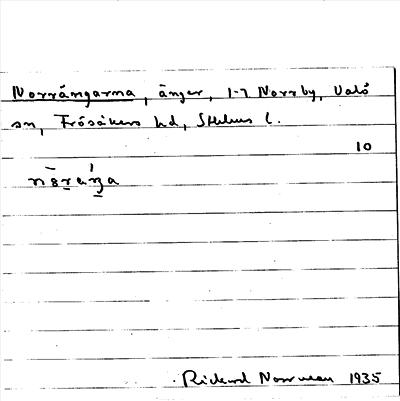 Norrängarna, änger, 1-7 Norrby, Valö
sn, Frösåkers hd, Sthlms l.
10
Rickard Norrman 1935